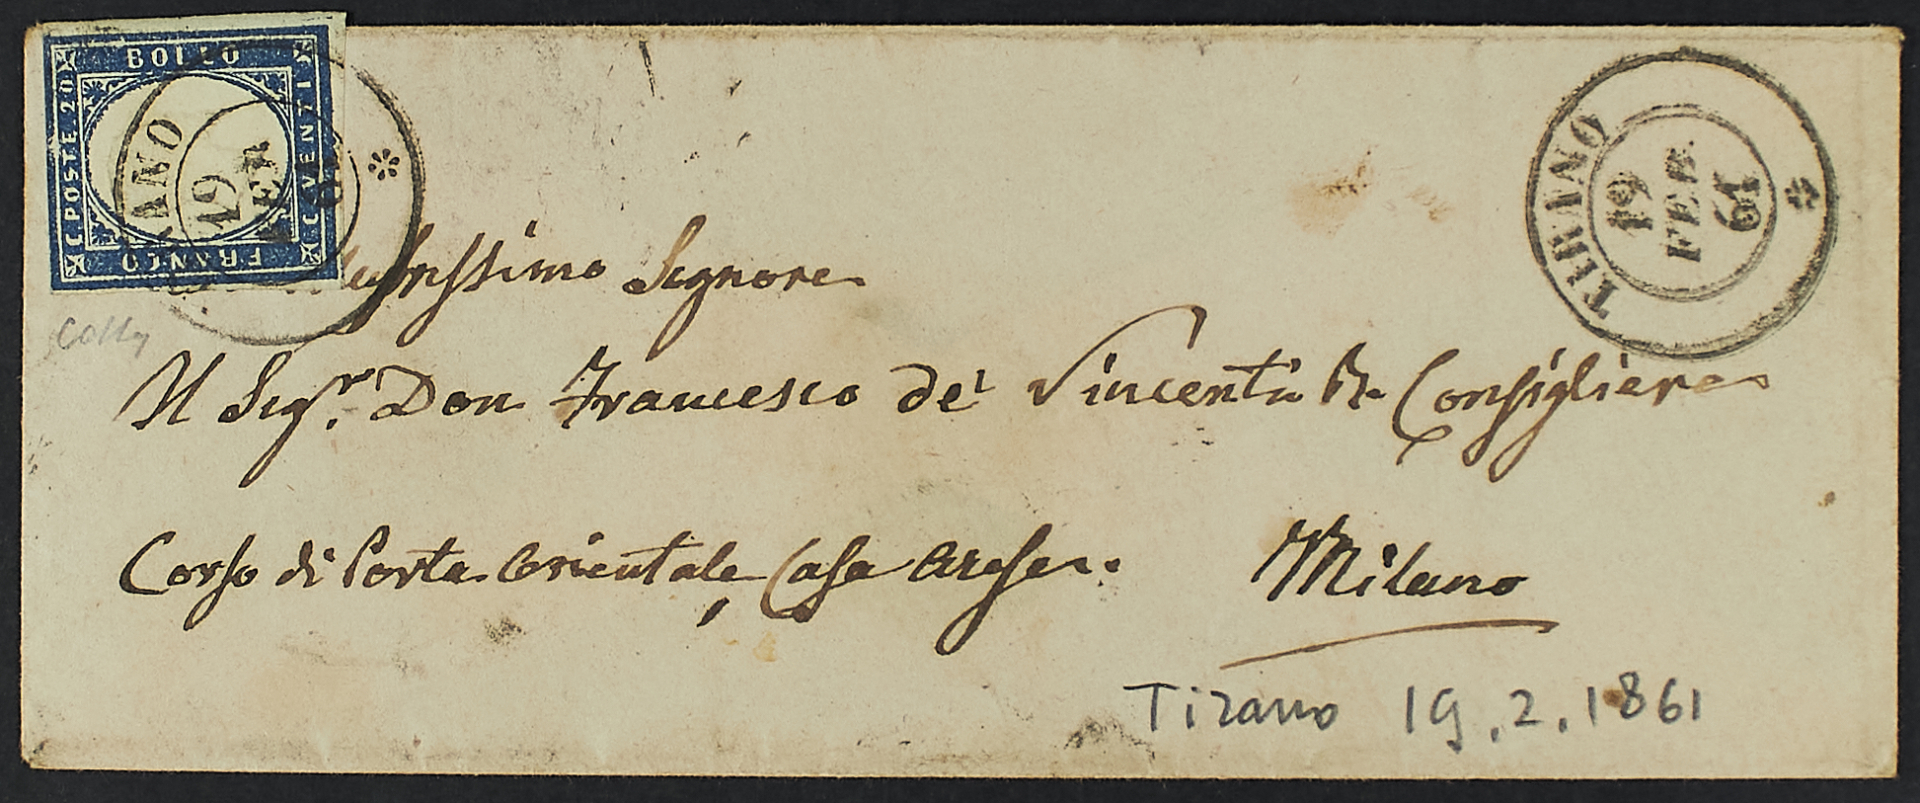 BOLLO
C. POSTE. 20
C. VENTI
FRANCO
ANO
19
FEB
61
TIRANO
19
FEB.
61
Illustrissimo Signore
Il Sigr. Don Francesco de' Vincenti R. Consigliere
Corso di Porta Orientale, Casa Arese.
Milano
Tirano 19.2.1861